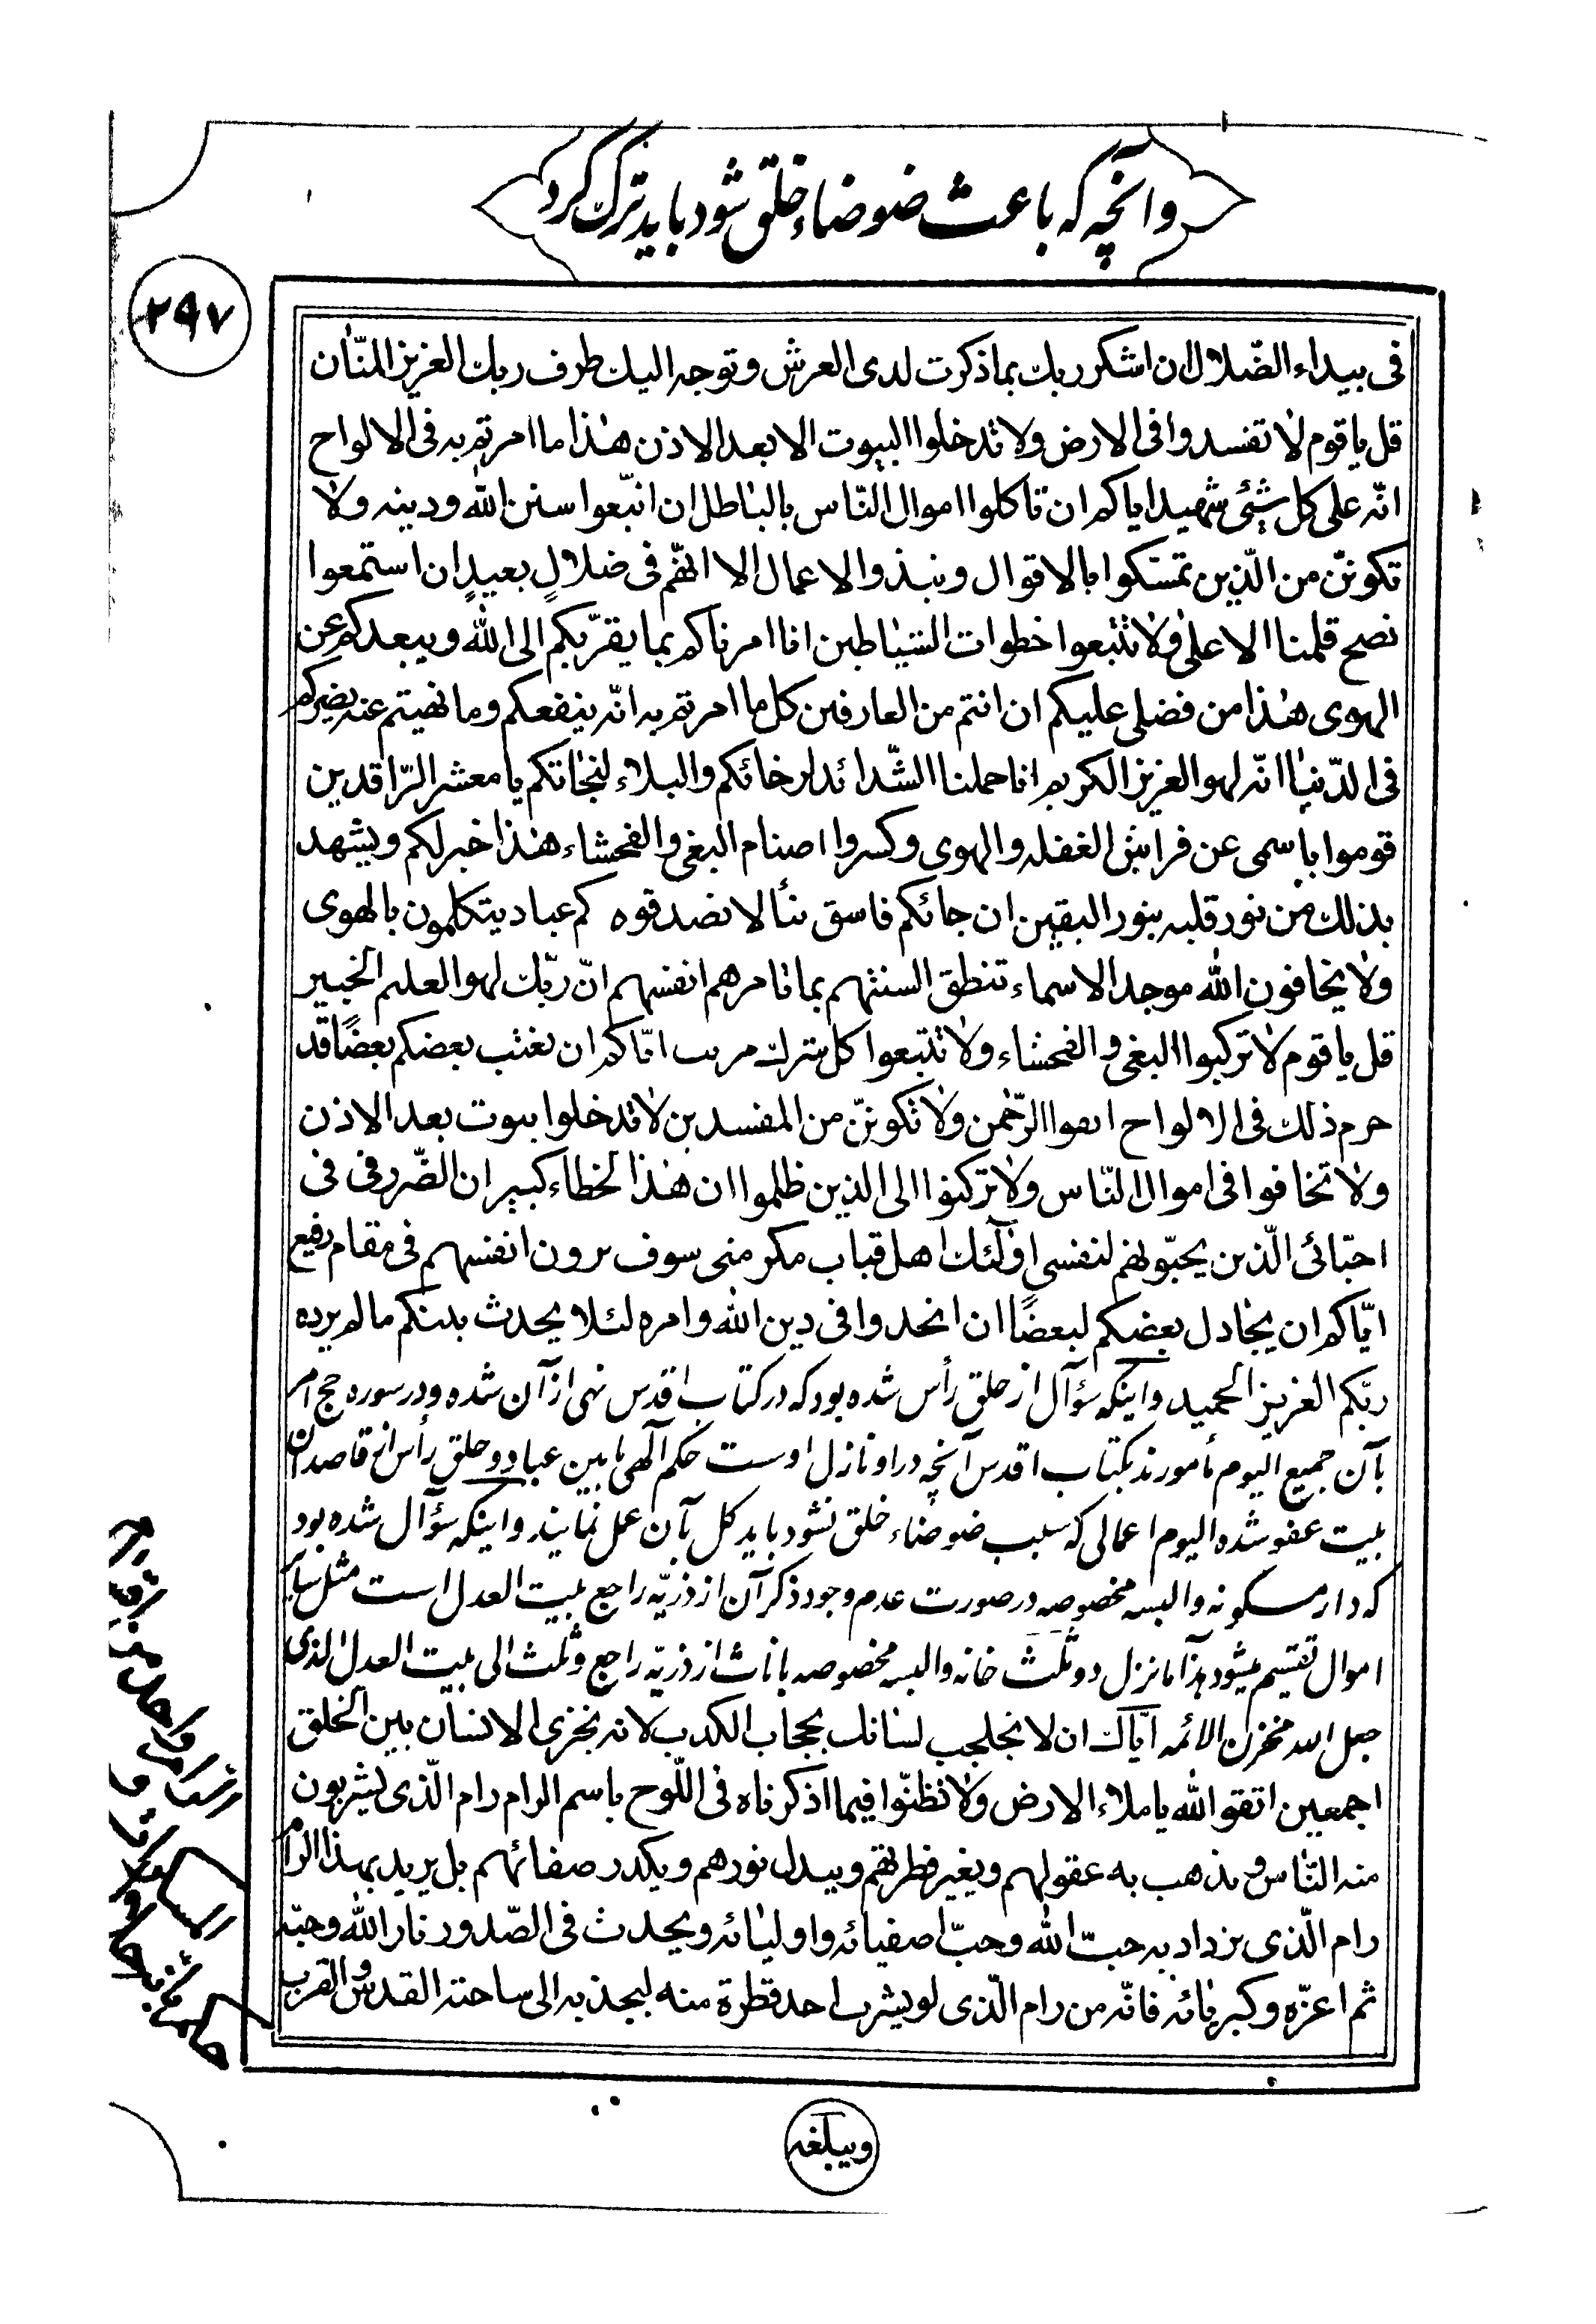 وآنچه که باعث ضوضاء خلق شود باید ترک کرد
۲۹۷
فی بیداء الضّلال ان اشکر ربک بما ذکرت لدی العرش و توجه الیک طرف ربک العزیز المنّان
قل یا قوم لا تفسدوا فی الارض ولا تدخلوا البیوت الا بعد الاذن هذا ما امرتم به فی الالواح
انّه علی کل شیئ شهید ایاکم ان تاکلوا اموال النّاس بالباطل ان اتبّعوا سنن الله و دینه ولا
تکوننّ من الّذین تمسّکوا بالاقوال و نبذوالاعمال الا انهّم فی ضلالٍ بعیدٍ ان استمعوا
نصح قلمنا الاعلی ولا تتبعوا خطوات الشیاطین انا امرناکم بما یقرّبکم الی الله و یبعدکم عن
الهوی هذا من فضلی علیکم ان انتم من العارفین کل ما امرتم به انّه ینفعکم وما نهیتم عنه یضرکم
فی الدّنیا انّه لهو العزیز الکریم انا حملنا الشّدائد لرخائکم والبلاء لنجاتکم یا معشر الرّاقدین
قوموا باسمی عن فراش الغفله والهوی وکسروا اصنام البغی والفحشاء هذا خبر لکم ویشهد
بذلک من نور قلبه بنور الیقین ان جائکم فاسق بنأ لا تصدقوه کم عباد یتکلمون بالهوی
ولا یخافون الله موجد الاسماء تنطق السنتهم بما تامرهم انفسهم انّ ربّک لهو العلیم الخبیر
قل یا قوم لا ترکبوا البغی والفحشاء ولا تتبعوا کل مشرک مریب ایّاکم ان یغتب بعضکم بعضًا قد
حرم ذلک فی الالواح اتقوا الرّحمن ولا تکوننّ من المفسدین لا تدخلوا بیوت بعد الاذن
ولا تخافوا فی اموال النّاس ولا ترکنوا الی الذین ظلموا ان هذا لخطاء کبیر ان الضّر وفی فی
احبّائی الّذین یحبّونهم لنفسی اولٓئک اهل قباب مکرمتی سوف یرون انفسهم فی مقام رفیع
ایّاکم ان یجادل بعضکم لبعضًا ان اتحدوا فی دین الله وامره لئلا یحدث بینکم ما لم یرده
ربّکم العزیز الحمید واینکه سؤآل از حلق رأس شده بود که در کتاب اقدس نهی از آن شده ودر سوره حج امر
بآن جمیع الیوم مأمورند بکتاب اقدس آنچه در او نازل اوست حکم آلهی مابین عباد و حلق رأس از قاصدان
بیت عفو شده الیوم اعمالی که سبب ضوضاء خلق نشود باید کل بآن عمل نمایند واینکه سؤآل شده بود
که دار مسکونه والبسه مخصوصه در صورت عدم وجود ذکرآن از ذریّه راجع ببیت العدل است مثل سایر
اموال تقسیم میشود هذا ما نزل دو ثلث خانه والبسه مخصوصه باناث از ذریّه راجع وثلث الی بیت العدل الذی
جعل الله مخزن الائمه ایّاک ان لا تجلجب لسانک بحجاب الکذب لانه یخزی الانسان بین الخلق
اجمعین اتقوالله یاملاء الارض ولا تظنّوا فیما اذکرناه فی اللّوح باسم الرام رام الّذی یشربون
منه النّاس ویذهب به عقولهم ویغیر فطرتهم ویبدل نورهم ویکدر صفائهم بل یرید بهذا الرام
رام الّذی یزداد به حبّ الله وحبّ اصفیائه واولیائه ویحدث فی الصّدور نار الله وحبّه
ثم اعزّه وکبریائه فانّه من رام الّذی لویشرب احد قطرة منه لیجذبه الی ساحة القدس والقرب
ویبلغه